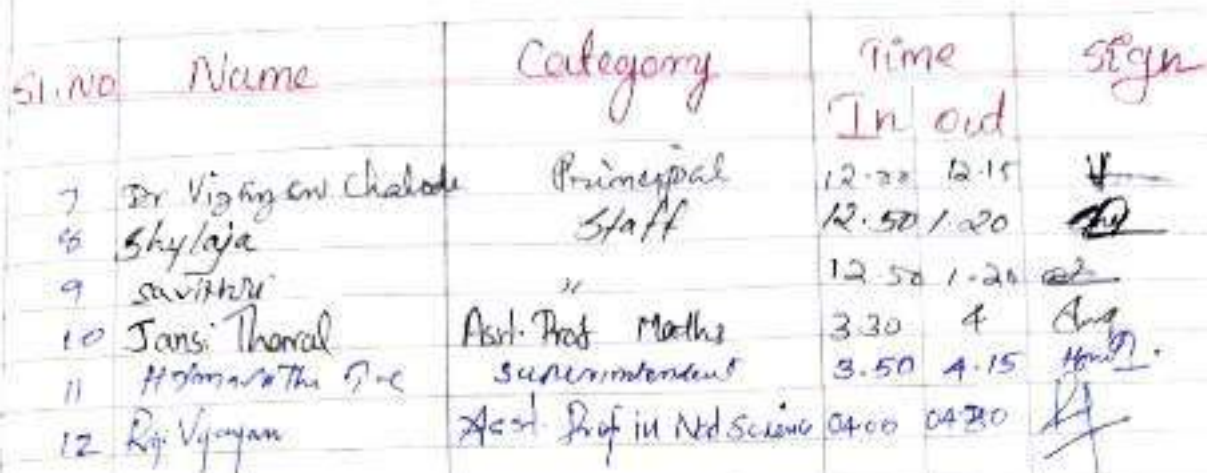 Sl.No Name Category Time Sign
In out
7 Dr Vijayan Chalode Principal 12.00 12.15
8 Shylaja Staff 12.50 1.20
9 savithri " 12.50 1.20
10 Jansi Thomal Asst. Prof Maths 3.30 4
11 Superintendent 3.50 4.15
12 Riji Vijayan Asst. Prof in Ntl Science 04.00